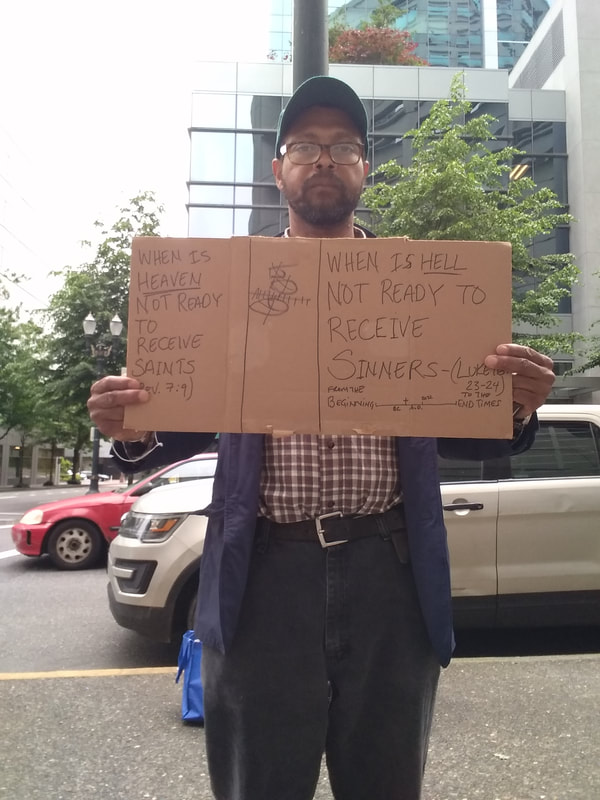 WHEN IS
HEAVEN
NOT READY
TO
RECEIVE
SAINTS
(REV. 7:9)
WHEN IS HELL
NOT READY TO
RECEIVE
SINNERS-(LUKE16
23-24)
FROM THE
BEGINNING
BC A.D.
TO THE
END TIMES